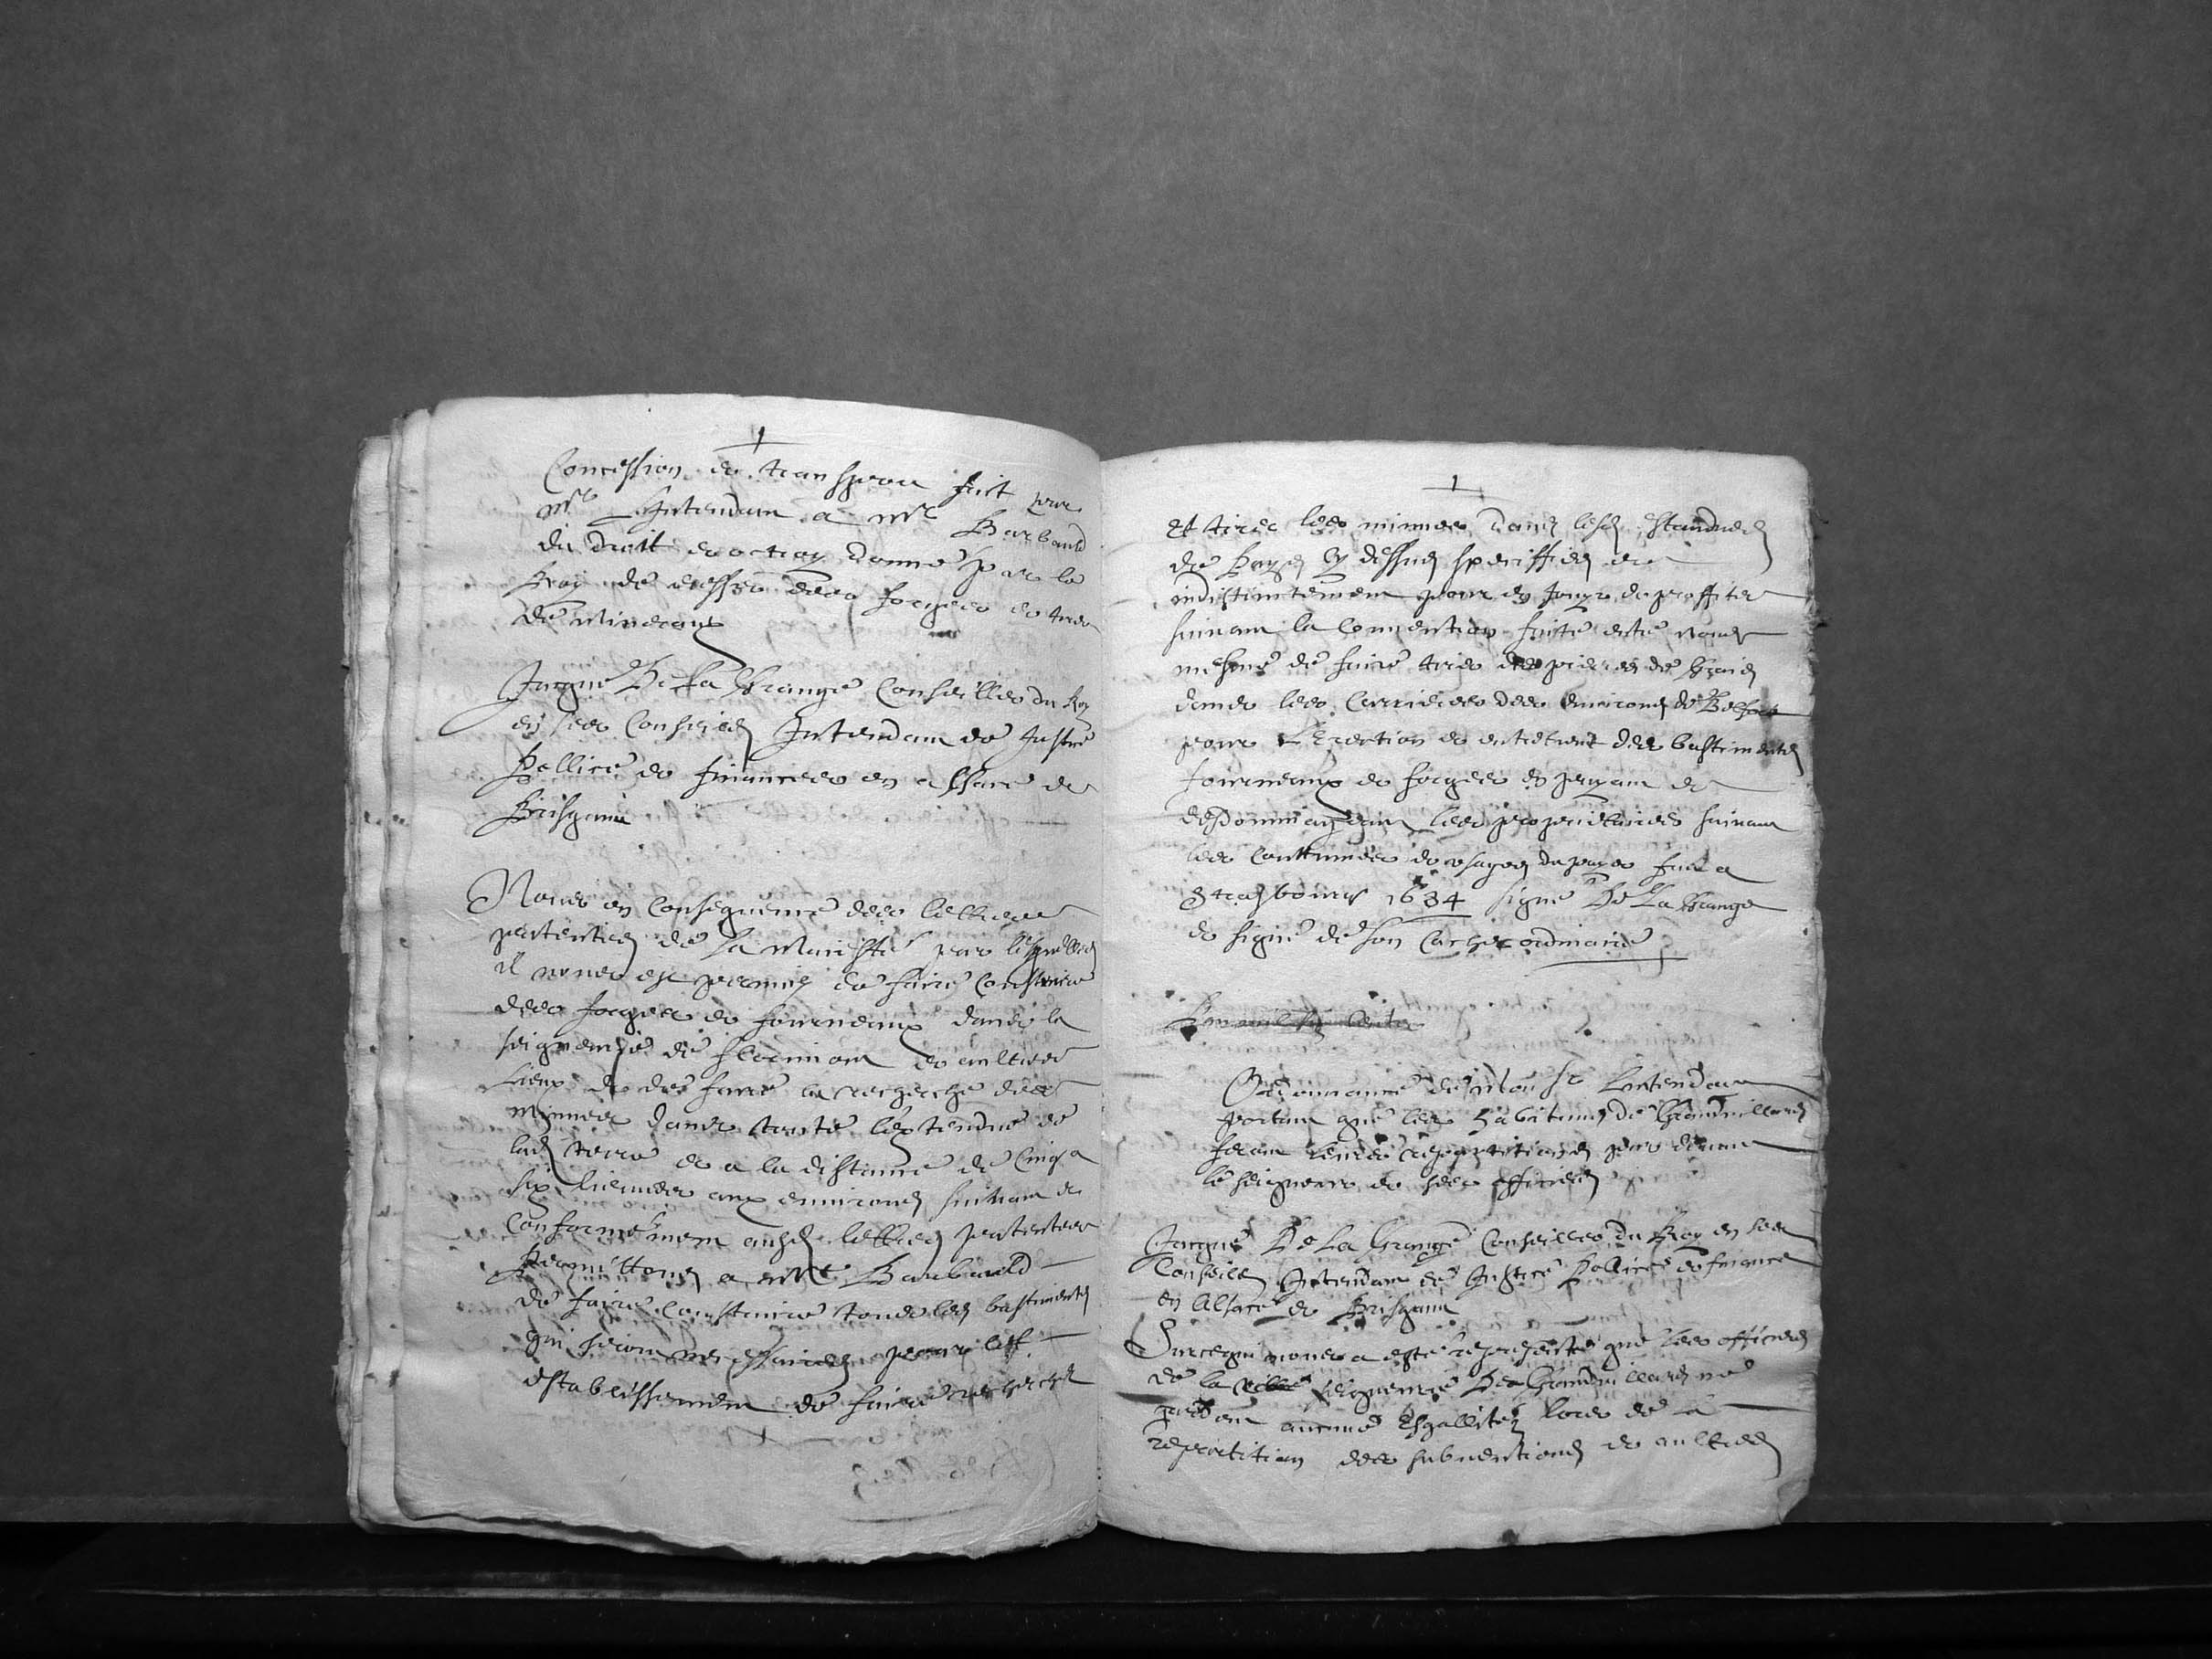 Concession et transport fait par
Mr L'Intendam a Mr Barbauld
du droit et octroy donné par le
Roy de dresser des forges et tirer
de mineraux
Jacque De La Grange Conseiller du Roy
en ses Conseils Intendam de Justice
Pollice et financess en alsace et
Brisgauu
Nous en Consequence des lettres
patentes de Sa Maiesté par lesquelles
il nous est permis de faire Construire
des forges et fourneaux dans la
seigneurie de florimom et aultres
Lieux et de faire la recherche des
minnes dans toute l'extendue de
lad terre et a la distance de Cinq a
six lieues aux environs suivam et
Conformémem ausd lettres patentes
permettons a Mr Barbauld
de faire Construire tous les bastiments
qui serom necessaires pour led
establissemem de faire recherche
et tirer les minnes dans lesd estendues
de pays cy dessus speciffiés et
indistinctemem pour en Jouyr et proffiter
suivam la Convention faite entre nous
mesme de faire tirer des pierres de
dans les Carrieres des environs de Belfort
pour L'Erection et entretient des bastiments
fourneaux et forges en payam et
desdommageam les proprietaires suivam
les Couttumes et usages du pays fait a
Strasbourg 1684 signé De La Grange
et signé de son Cachet ordinaire
Ordonnance de Mon sr Lintendam
portam que les habitans de Grandvillars
feram leurs repartitions par devam
le seigneur et ses officiers
Jacque De La Grange Conseiller du Roy en ses
Conseils Intendam de Justice Pollice et finance
en Alsace et Brisgauu
Surcequi nous a esté representé que les officiers
de la ville seigneurie De Grandvillars ne
gardam aucune Esgallité lors de la
repartition des subventions et aultres